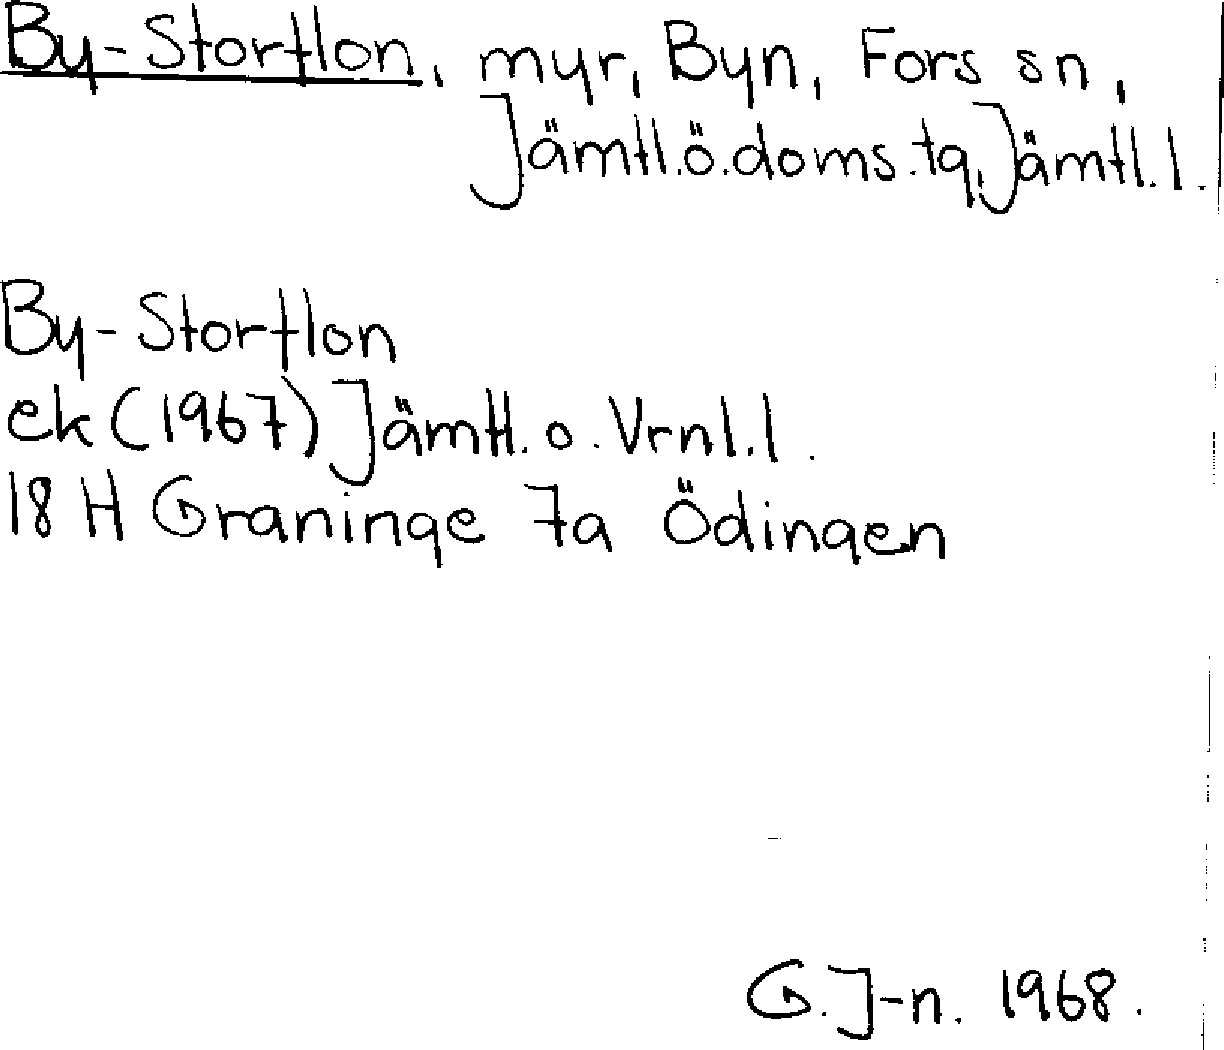 By-Storflon, myr, Byn, Fors sn,
Jämtl.ö.doms.tg, Jämtl.l.
By-Storflon
ek (1967) Jämtl. o. Vrnl.l.
18 H Graninge 7a Ödingen
G. J-n. 1968.